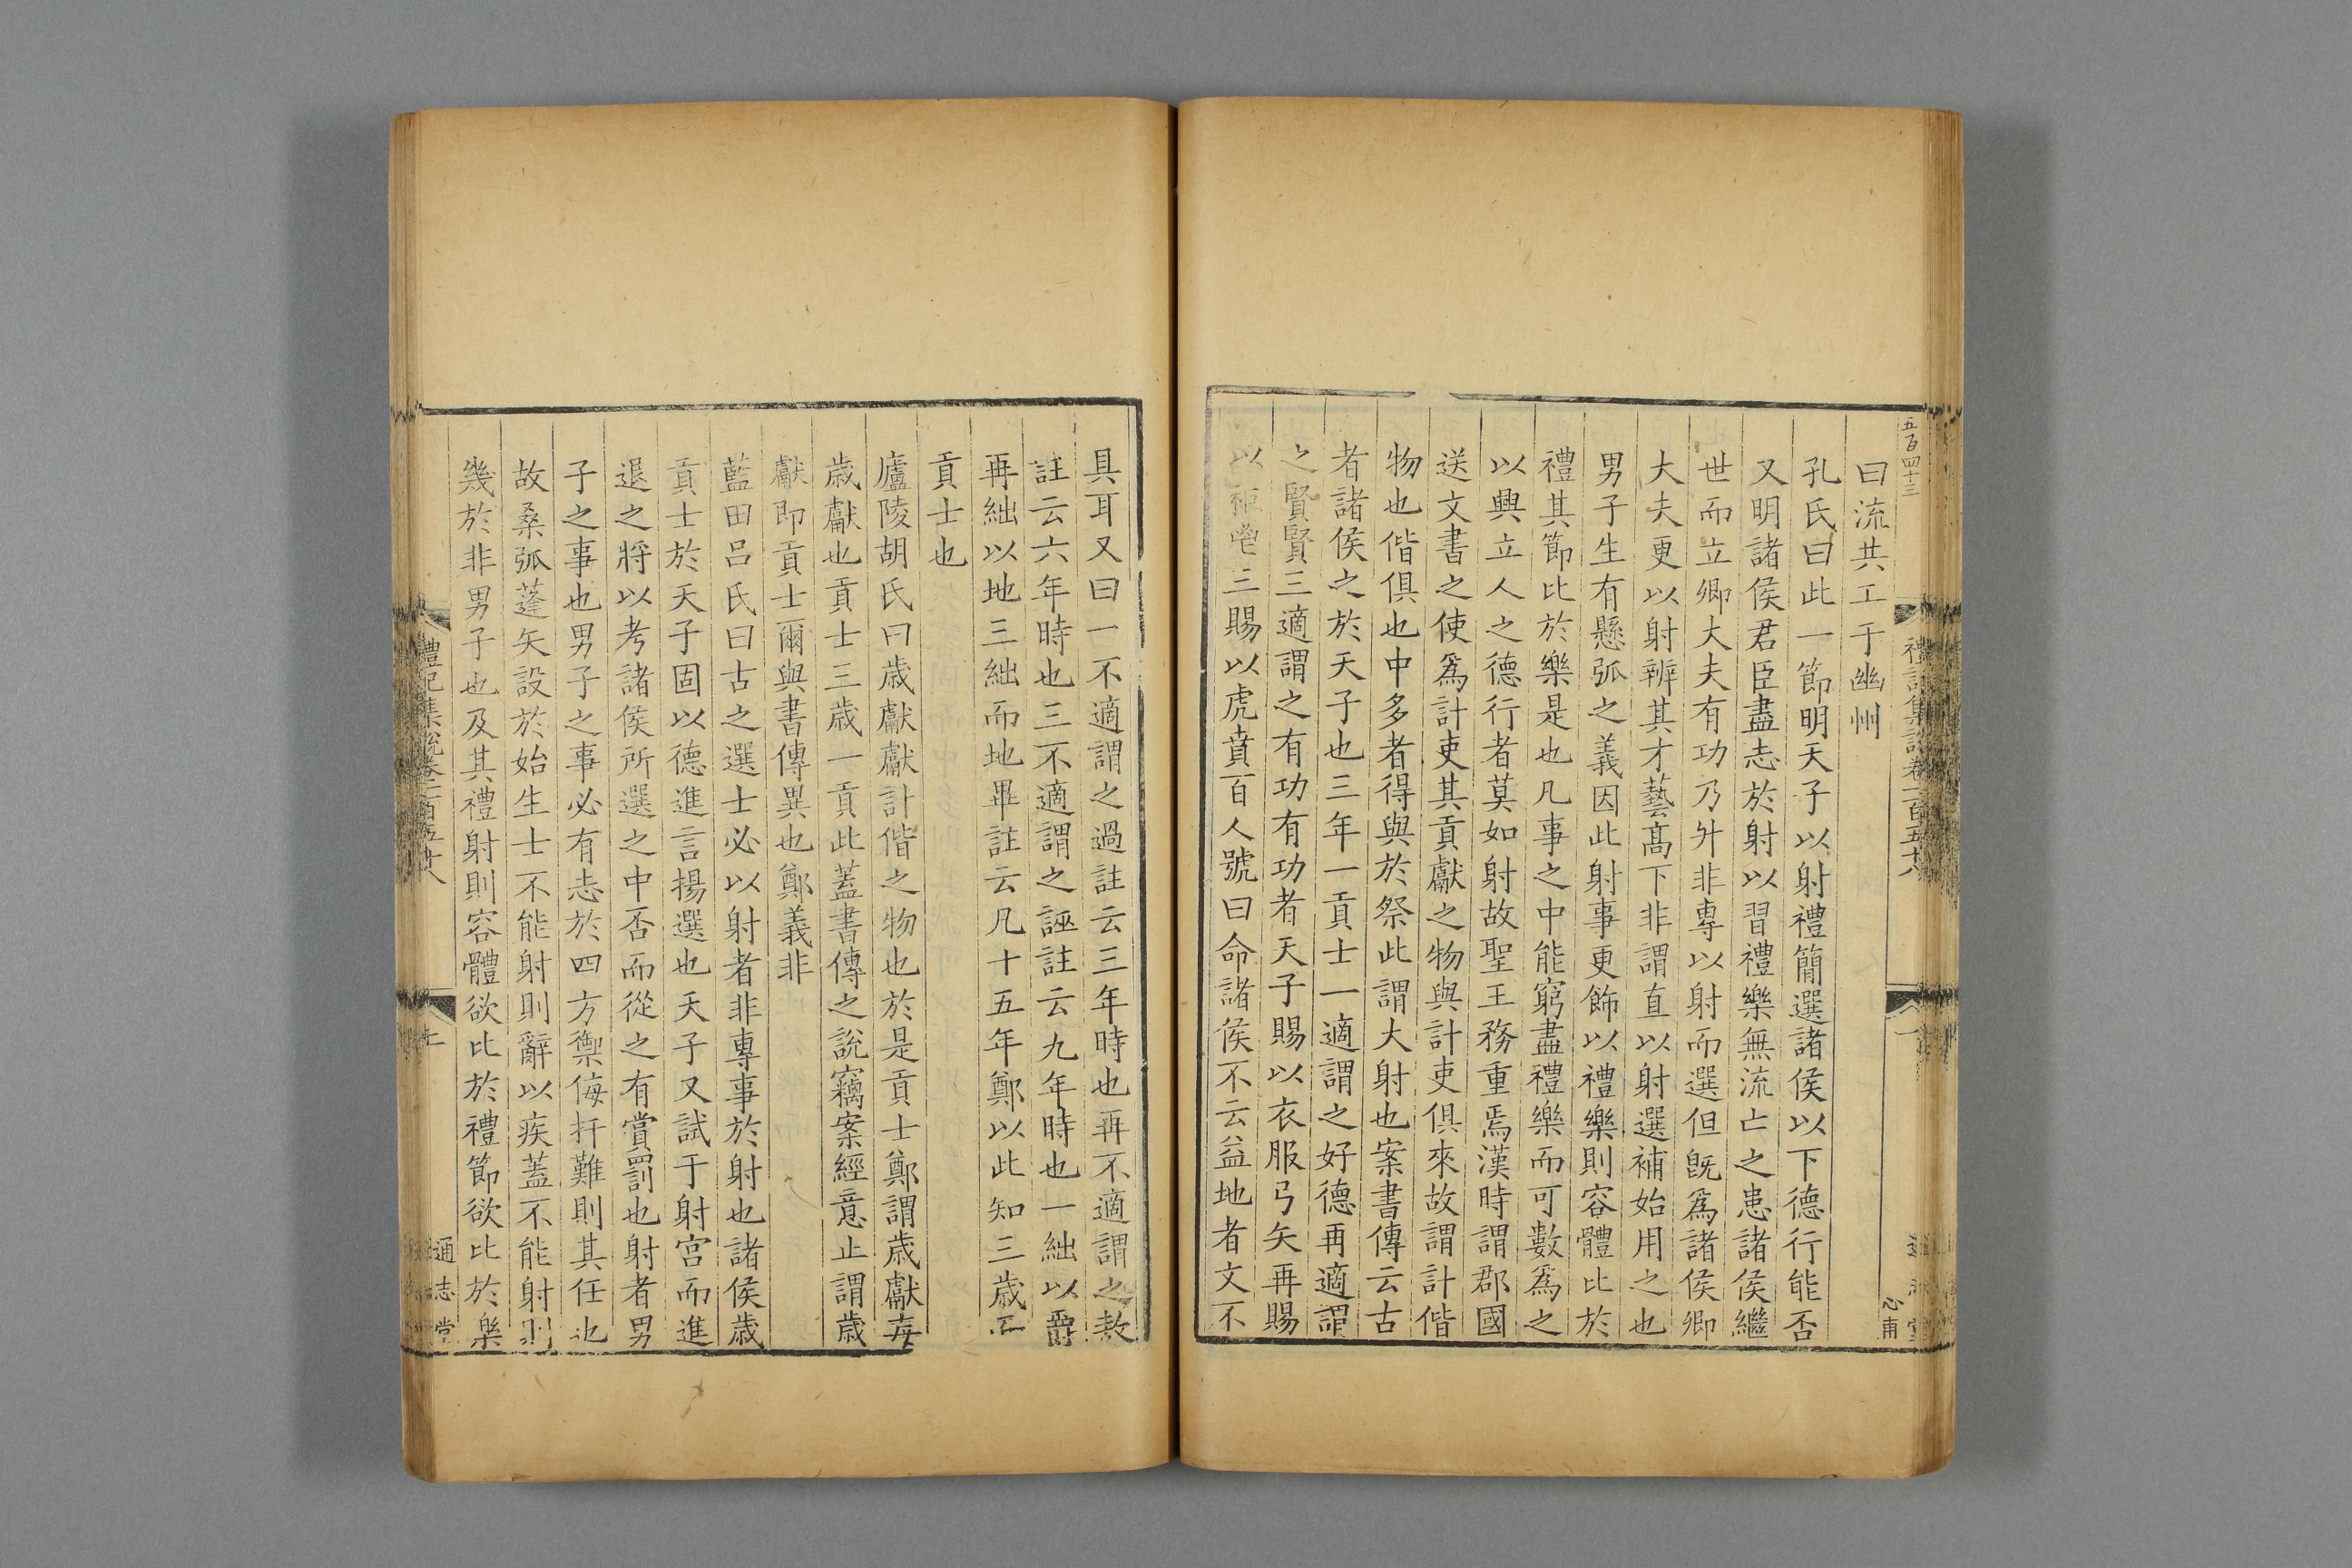 五百四十三
曰流共工于幽州
孔氏曰此一節明天子以射禮簡選諸侯以下德行能否
又明諸侯君臣盡志於射以習禮樂無流亡之患諸侯繼
世而立卿大夫有功乃升非專以射而選但旣爲諸侯卿
大夫更以射辨其才藝髙下非謂直以射選補始用之也
男子生有懸弧之義因此射事更飾以禮樂則容體比於
禮其節比於樂是也凡事之中能窮盡禮樂而可數爲之
以興立人之德行者莫如射故聖王務重焉漢時謂郡國
送文書之使爲計吏其貢獻之物與計吏俱來故謂計偕
物也偕俱也中多者得與於祭此謂大射也案書傳云古
者諸侯之於天子也三年一貢士一適謂之好德再適謂
之賢賢三適謂之有功有功者天子賜以衣服弓矢再賜
以秬鬯三賜以虎賁百人號曰命諸侯不云益地者文不
禮記集說卷一百五十八
心甫
具耳又曰一不適謂之過註云三年時也再不適謂之敖
註云六年時也三不適謂之誣註云九年時也一絀以爵
再絀以地三絀而地畢註云凡十五年鄭以此知三歳而
貢士也
廬陵胡氏曰歳獻獻計偕之物也於是貢士鄭謂歳獻每
歳獻也貢士三歳一貢此蓋書傳之說竊案經意止謂歳
獻即貢士爾與書傳異也鄭義非
藍田呂氏曰古之選士必以射者非專事於射也諸侯歳
貢士於天子固以德進言揚選也天子又試于射宫而進
退之將以考諸侯所選之中否而從之有賞罰也射者男
子之事也男子之事必有志於四方禦侮扞難則其任也
故桑弧蓬矢設於始生士不能射則辭以疾蓋不能射則
幾於非男子也及其禮射則容體欲比於禮節欲比於樂
禮記集說卷一百五十八
通志堂